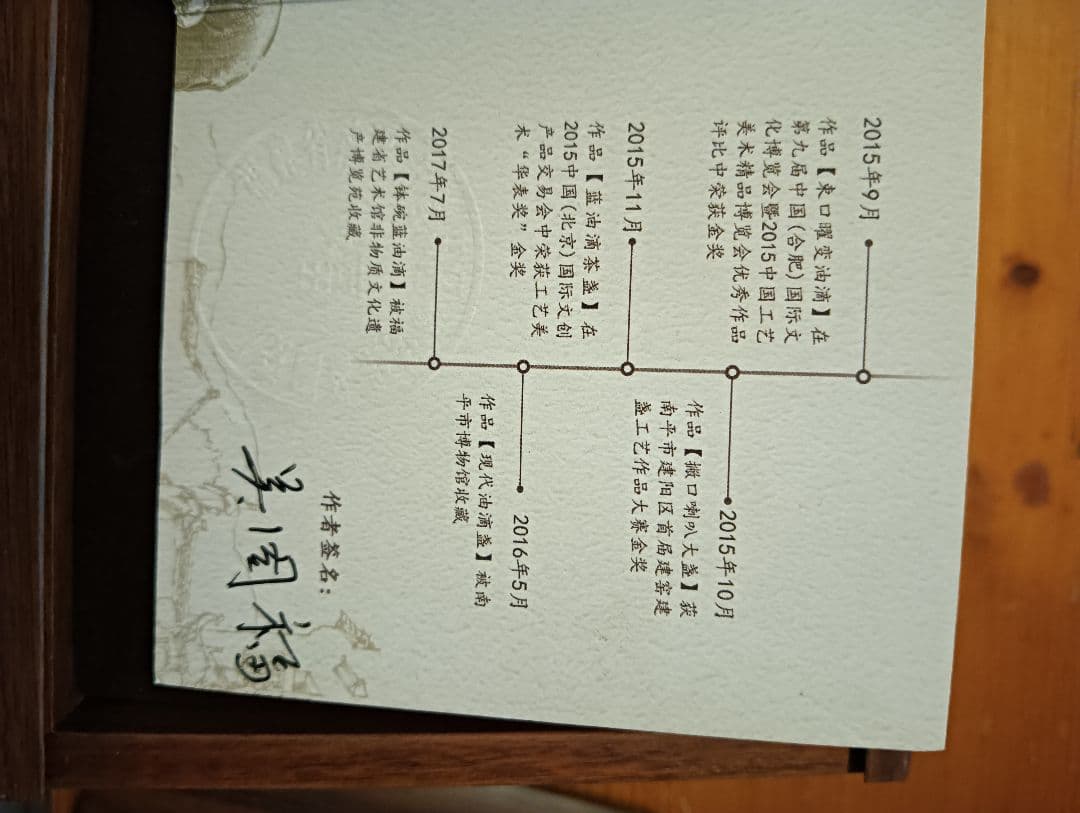 2015年9月
作品【束口曜变油滴】在
第九届中国(合肥)国际文
化博览会暨2015中国工艺
美术精品博览会优秀作品
评比中荣获金奖
2015年10月
作品【撇口喇叭大盏】获
南平市建阳区首届建窑建
盏工艺作品大赛金奖
2015年11月
作品【蓝油滴茶盏】在
2015中国(北京)国际文创
产品交易会中荣获工艺美
术“华表奖”金奖
2016年5月
作品【现代油滴盏】被南
平市博物馆收藏
2017年7月
作品【钵碗蓝油滴】被福
建省艺术馆非物质文化遗
产博览苑收藏
作者签名: